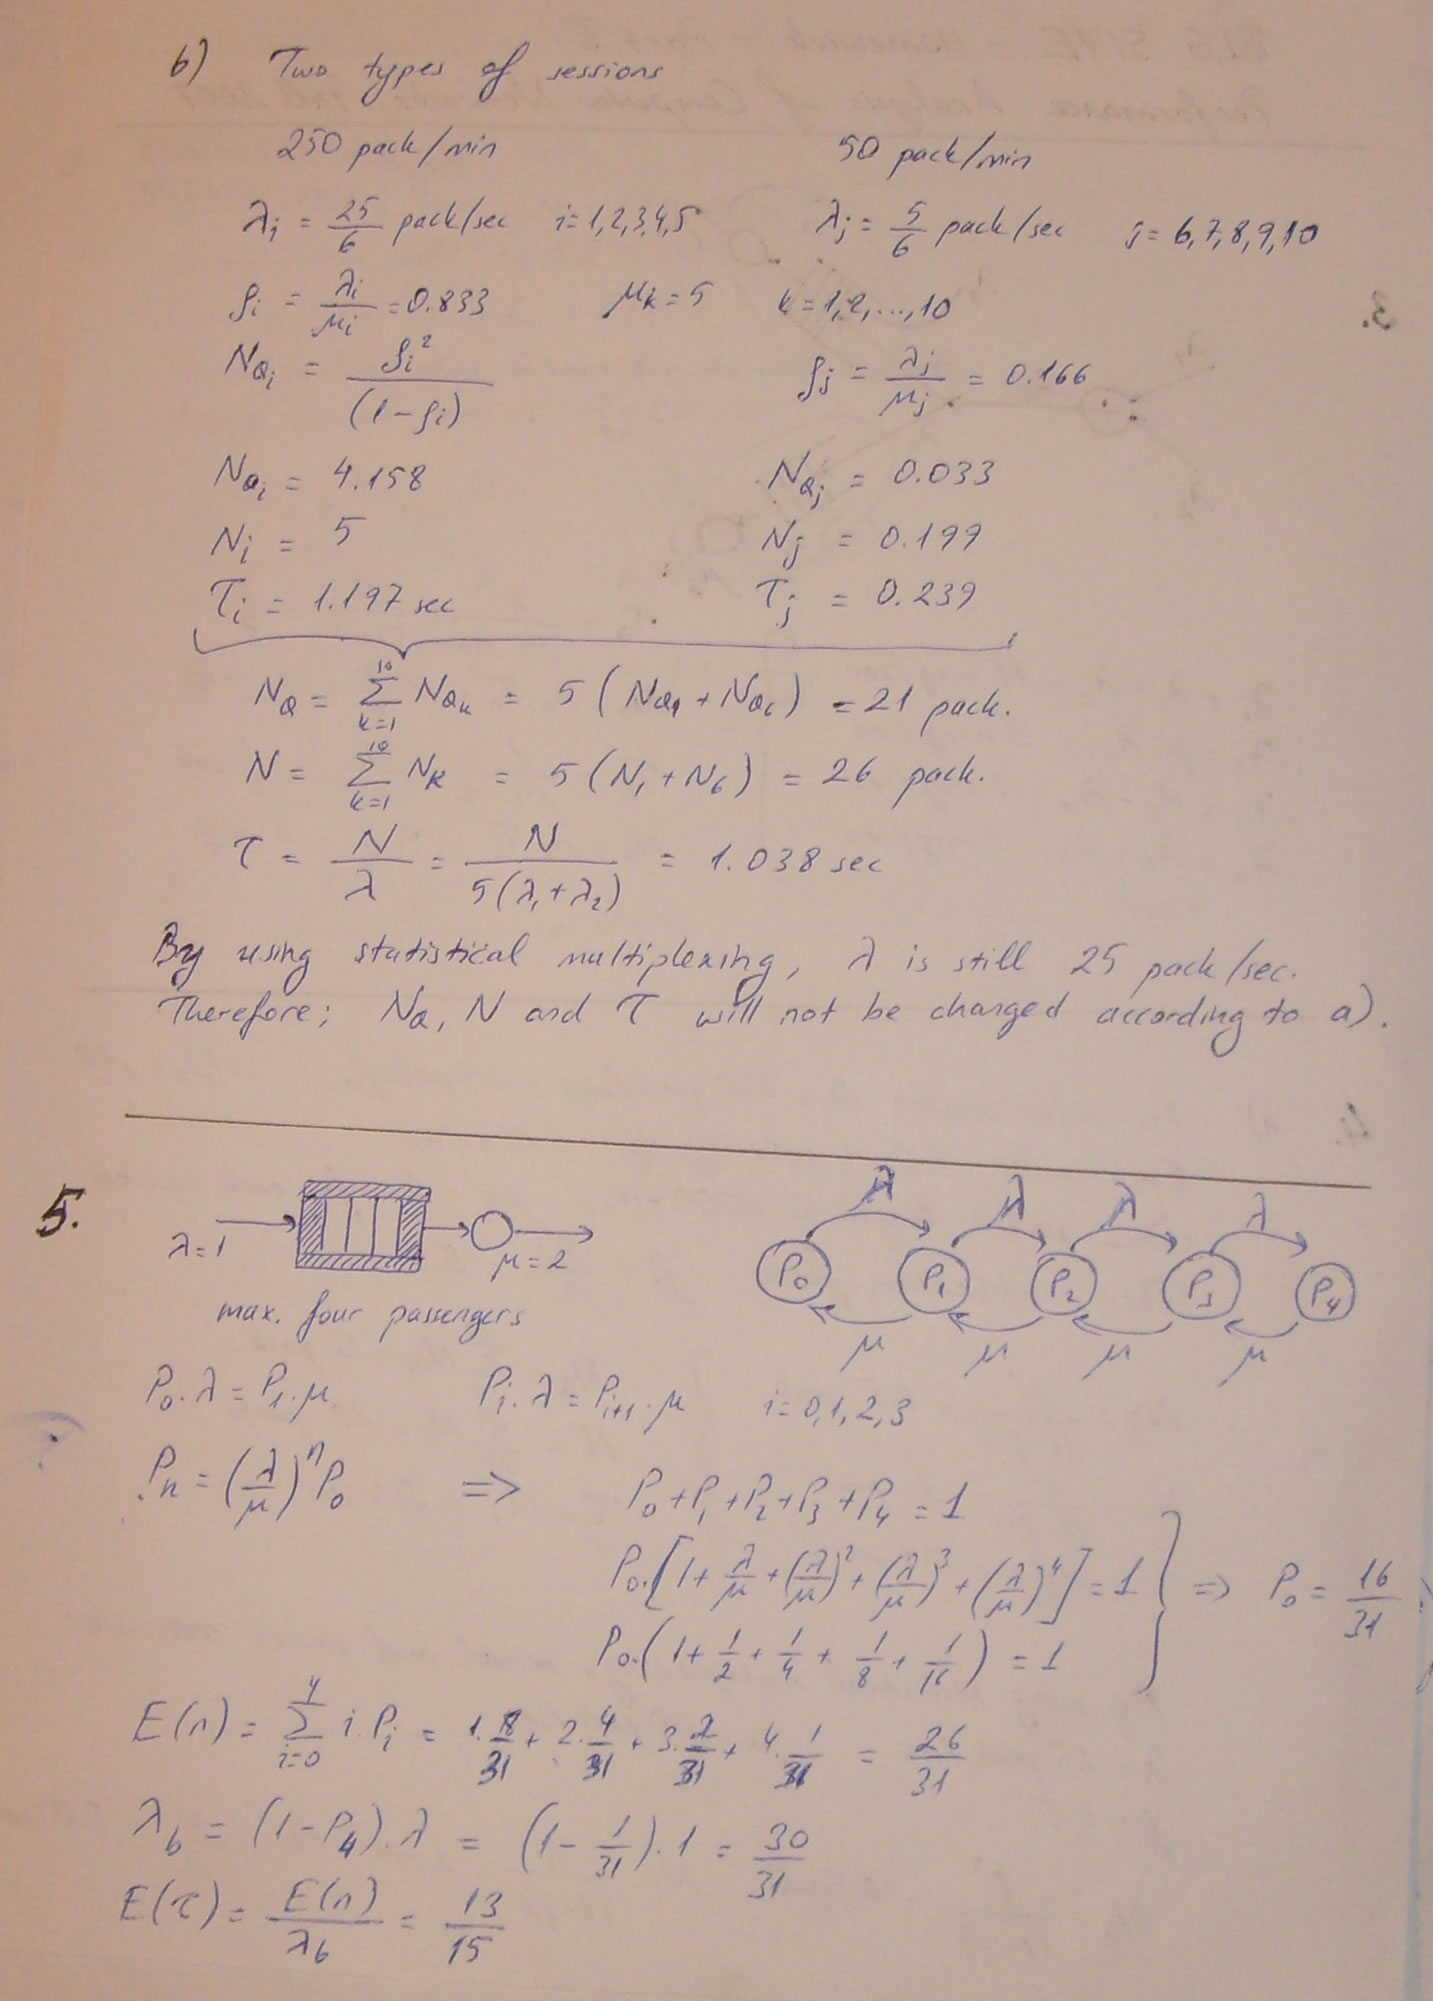 b) Two types of sessions
250 pack/min 50 pack/min
λi = 25/6 pack/sec i=1,2,3,4,5 λj = 5/6 pack/sec j=6,7,8,9,10
ρi = λi/μi = 0.833 μk=5 k=1,2,...,10
NQi = ρi²/(1-ρi) ρj = λj/μj = 0.166
NQi = 4.158 NQj = 0.033
Ni = 5 Nj = 0.199
τi = 1.197 sec τj = 0.239
NQ = Σ(k=1 to 10) NQk = 5(NQ1+NQ6) = 21 pack.
N = Σ(k=1 to 10) Nk = 5(N1+N6) = 26 pack.
τ = N/λ = N/5(λ1+λ2) = 1.038 sec
By using statistical multiplexing, λ is still 25 pack/sec.
Therefore; NQ, N and τ will not be changed according to a).
5.
λ=1 μ=2
max. four passengers
λ λ λ λ
P0 P1 P2 P3 P4
μ μ μ μ
P0.λ = P1.μ Pi.λ = Pi+1.μ i=0,1,2,3
Pn = (λ/μ)^n P0 => P0+P1+P2+P3+P4 = 1
P0.[1+λ/μ+(λ/μ)²+(λ/μ)³+(λ/μ)⁴]=1 } => P0 = 16/31
P0.(1+1/2+1/4+1/8+1/16) = 1
E(n) = Σ(i=0 to 4) i.Pi = 1.8/31 + 2.4/31 + 3.2/31 + 4.1/31 = 26/31
λb = (1-P4).λ = (1-1/31).1 = 30/31
E(τ) = E(n)/λb = 13/15